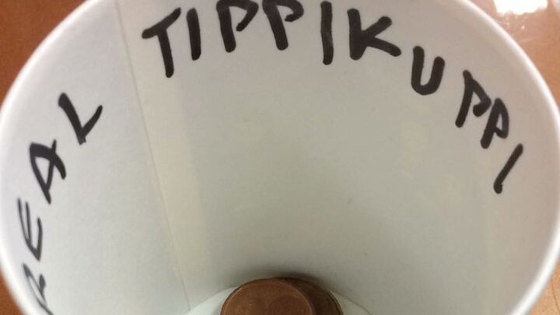 REAL TIPPIKUPPI